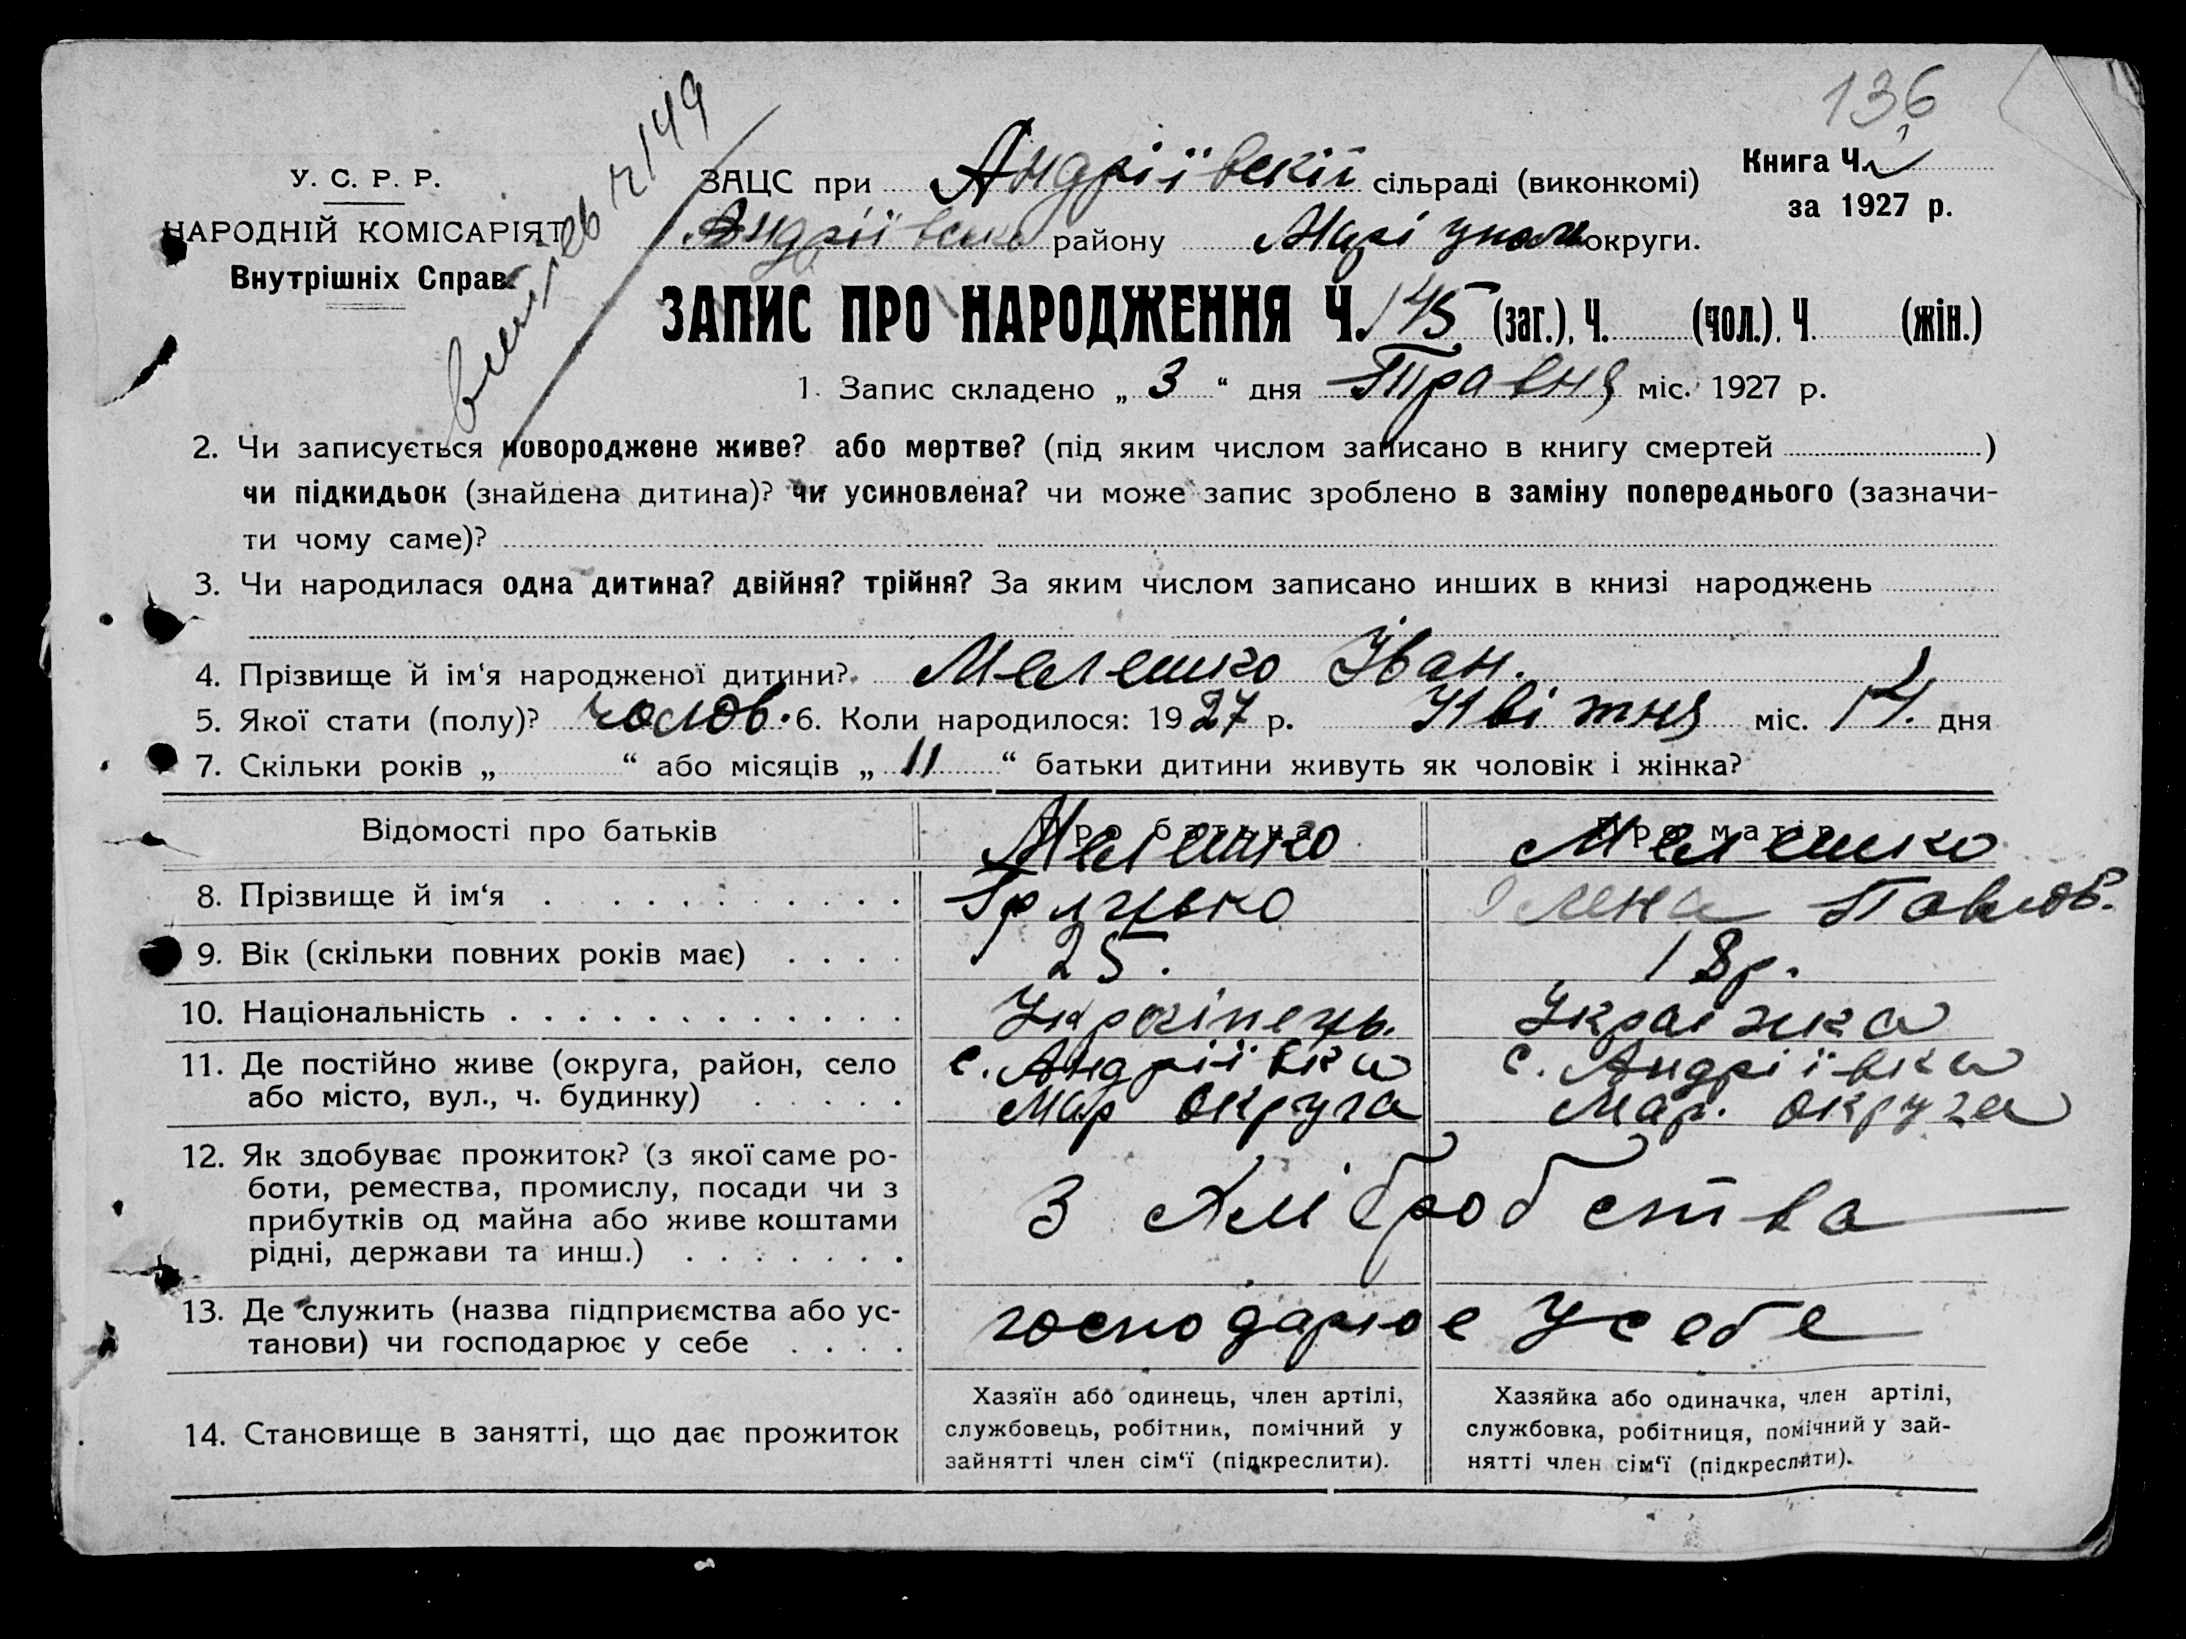 136
У. С. Р. Р.
НАРОДНІЙ КОМІСАРІЯТ
Внутрішніх Справ.
Ч149
ЗАЦС при Андріївскій сільраді (виконкомі)
Книга Ч.
за 1927 р.
Андріївсько району Маріупол округи.
ЗАПИС ПРО НАРОДЖЕННЯ Ч. 145 (заг.), Ч. (чол.), Ч (жін.)
1. Запис складено „ 3 “ дня Травня міс. 1927 р.
2. Чи записується новороджене живе? або мертве? (під яким числом записано в книгу смертей )
чи підкидьок (знайдена дитина)? чи усиновлена? чи може запис зроблено в заміну попереднього (зазначи-
ти чому саме)?
3. Чи народилася одна дитина? двійня? трійня? За яким числом записано инших в книзі народжень
4. Прізвище й ім‘я народженої дитини? Мелешко Іван.
5. Якої стати (полу)? чолов. 6. Коли народилося: 1927 р. Квітня міс. 14. дня
7. Скільки років „ “ або місяців „ 11 “ батьки дитини живуть як чоловік і жінка?
Відомості про батьків Про батька Про матір
Мелешко Мелешко
8. Прізвище й ім‘я Грицько Олена Павлов.
9. Вік (скільки повних років має) 25. 18р.
10. Національність Українець. Українка
11. Де постійно живе (округа, район, село с. Андріївка с. Андріївка
або місто, вул., ч. будинку) Мар округа Мар. округа
12. Як здобуває прожиток? (з якої саме ро-
боти, ремества, промислу, посади чи з
прибутків од майна або живе коштами
рідні, держави та инш.)
З хліборобства
13. Де служить (назва підприємства або ус-
танови) чи господарює у себе
господарює у себе
14. Становище в занятті, що дає прожиток
Хазяїн або одинець, член артілі,
службовець, робітник, помічний у
зайнятті член сім‘ї (підкреслити).
Хазяйка або одиначка, член артілі,
службовка, робітниця, помічний у зай-
нятті член сім‘ї (підкреслити).